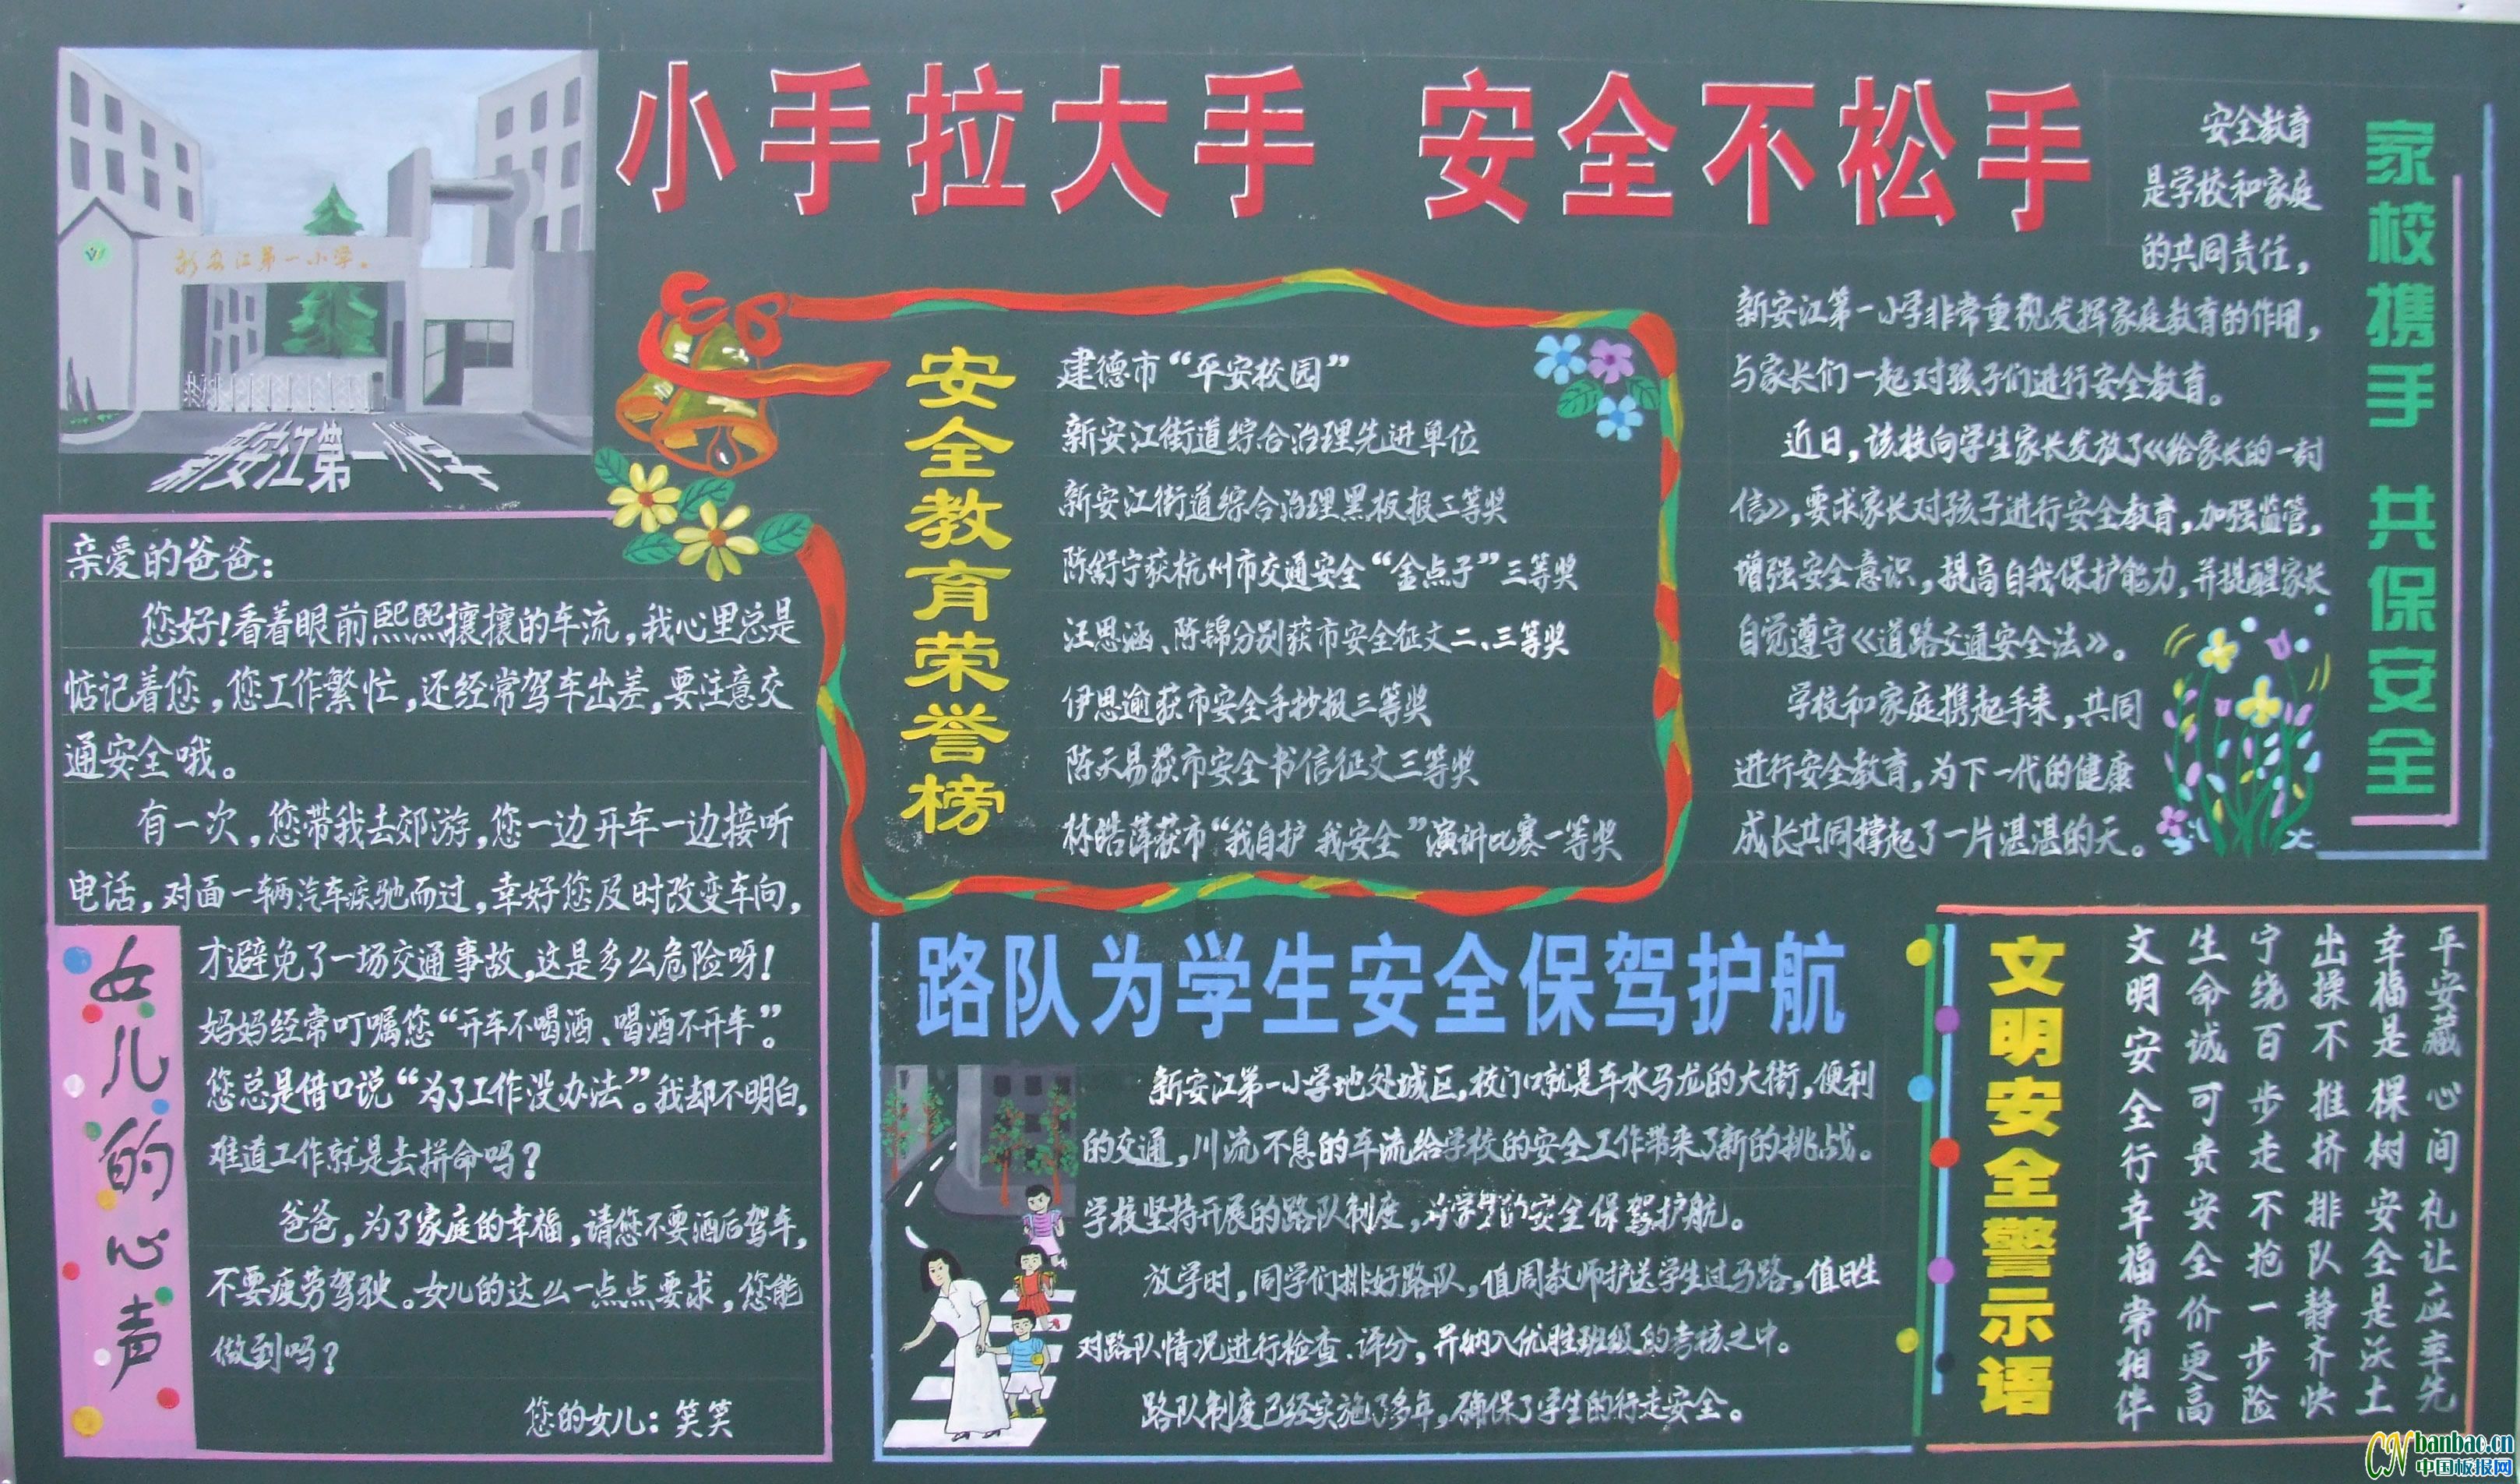 小手拉大手 安全不松手
新安江第一小学
新安江第一小学
亲爱的爸爸：
您好！看着眼前熙熙攘攘的车流，我心里总是
惦记着您，您工作繁忙，还经常驾车出差，要注意交
通安全哦。
有一次，您带我去郊游，您一边开车一边接听
电话，对面一辆汽车疾驰而过，幸好您及时改变车向，
才避免了一场交通事故，这是多么危险呀！
妈妈经常叮嘱您“开车不喝酒、喝酒不开车”。
您总是借口说“为了工作没办法”。我却不明白，
难道工作就是去拼命吗？
爸爸，为了家庭的幸福，请您不要酒后驾车，
不要疲劳驾驶。女儿的这么一点点要求，您能
做到吗？
您的女儿：笑笑
女儿的心声
安全教育荣誉榜
建德市“平安校园”
新安江街道综合治理先进单位
新安江街道综合治理黑板报二等奖
陈舒宁获杭州市交通安全“金点子”三等奖
汪思涵、陈锦分别获市安全征文二、三等奖
伊思逾获市安全手抄报三等奖
陈天易获市安全书信征文三等奖
林皓萍获市“我自护 我安全”演讲比赛一等奖
家校携手 共保安全
安全教育
是学校和家庭
的共同责任，
新安江第一小学非常重视发挥家庭教育的作用，
与家长们一起对孩子们进行安全教育。
近日，该校向学生家长发放了《给家长的一封
信》，要求家长对孩子进行安全教育，加强监管，
增强安全意识，提高自我保护能力，并提醒家长
自觉遵守《道路交通安全法》。
学校和家庭携起手来，共同
进行安全教育，为下一代的健康
成长共同撑起了一片湛湛的天。
路队为学生安全保驾护航
新安江第一小学地处城区，校门口就是车水马龙的大街，便利
的交通，川流不息的车流给学校的安全工作带来了新的挑战。
学校坚持开展的路队制度，为学生的安全保驾护航。
放学时，同学们排好路队，值周教师护送学生过马路，值日生
对路队情况进行检查、评分，并纳入优胜班级的考核之中。
路队制度已经实施了多年，确保了学生的行走安全。
文明安全警示语
平安藏心间 礼让应率先
幸福是棵树 安全是沃土
出操不推挤 排队静齐快
宁绕百步走 不抢一步险
生命诚可贵 安全价更高
文明安全行 幸福常相伴
CN banbao.cn
中国板报网